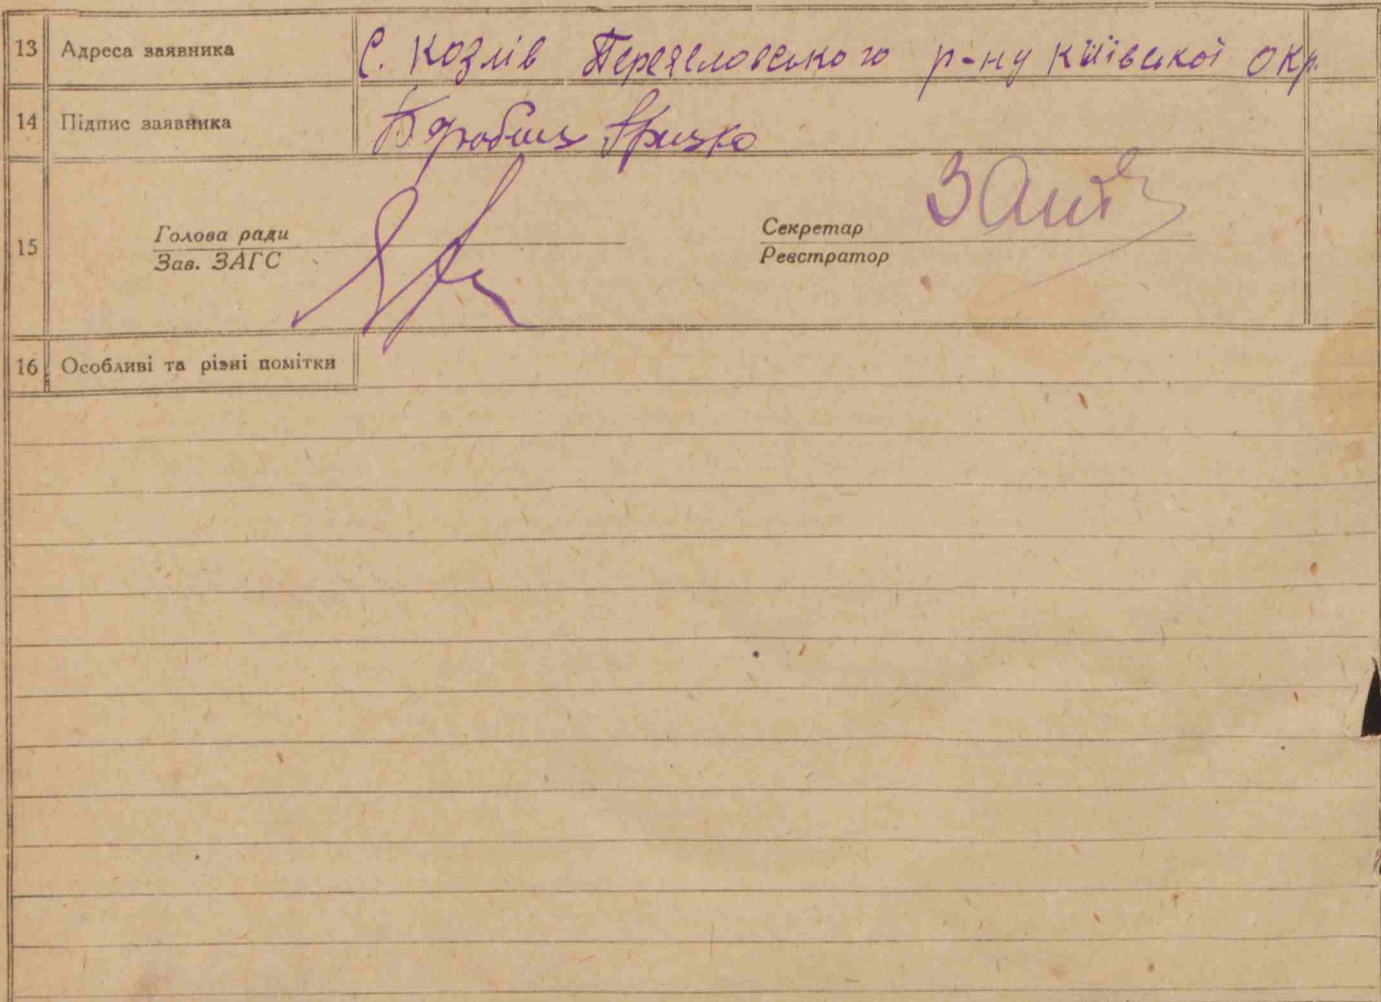 13 Адреса заявника С. Козлів Переясловського р-ну Київської окр.
14 Підпис заявника Грицко
15
Голова ради
Зав. ЗАГС
Секретар
Реєстратор
16 Особливі та різні помітки